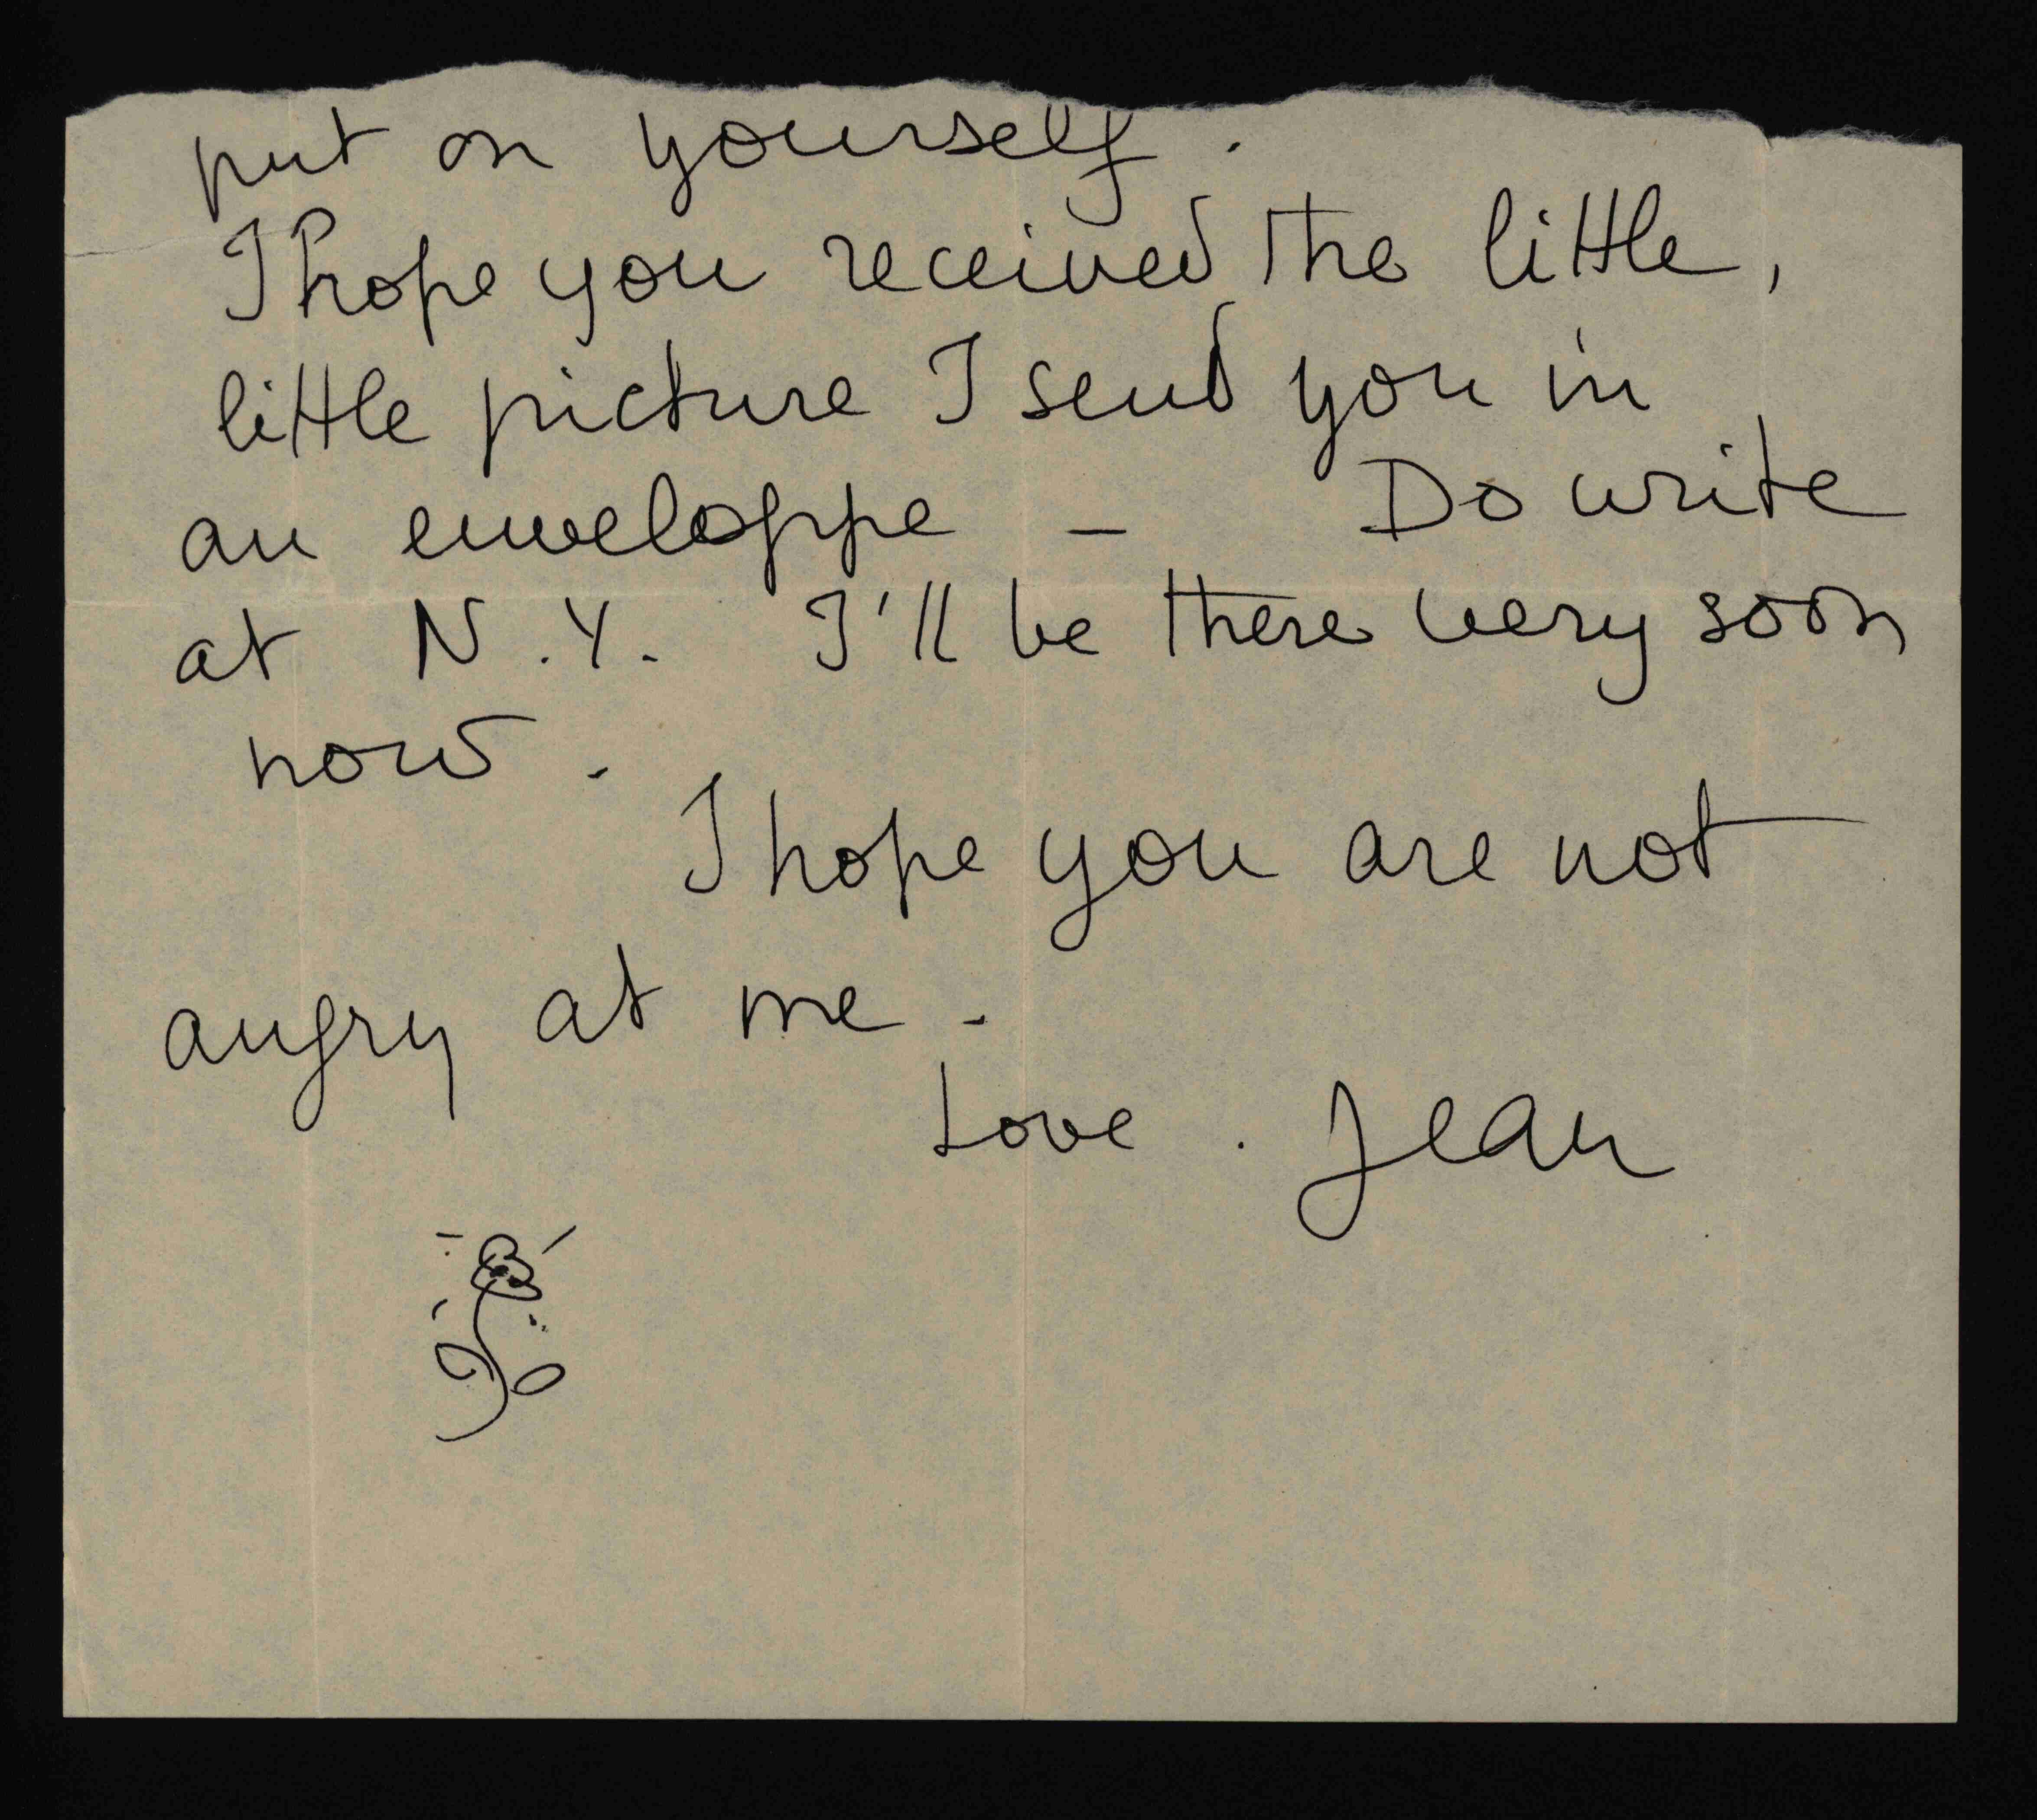 put on yourself.
I hope you received the little,
little picture I send you in
an enveloppe - Do write
at N.Y. I'll be there very soon
now.
I hope you are not
angry at me -
Love. Jean